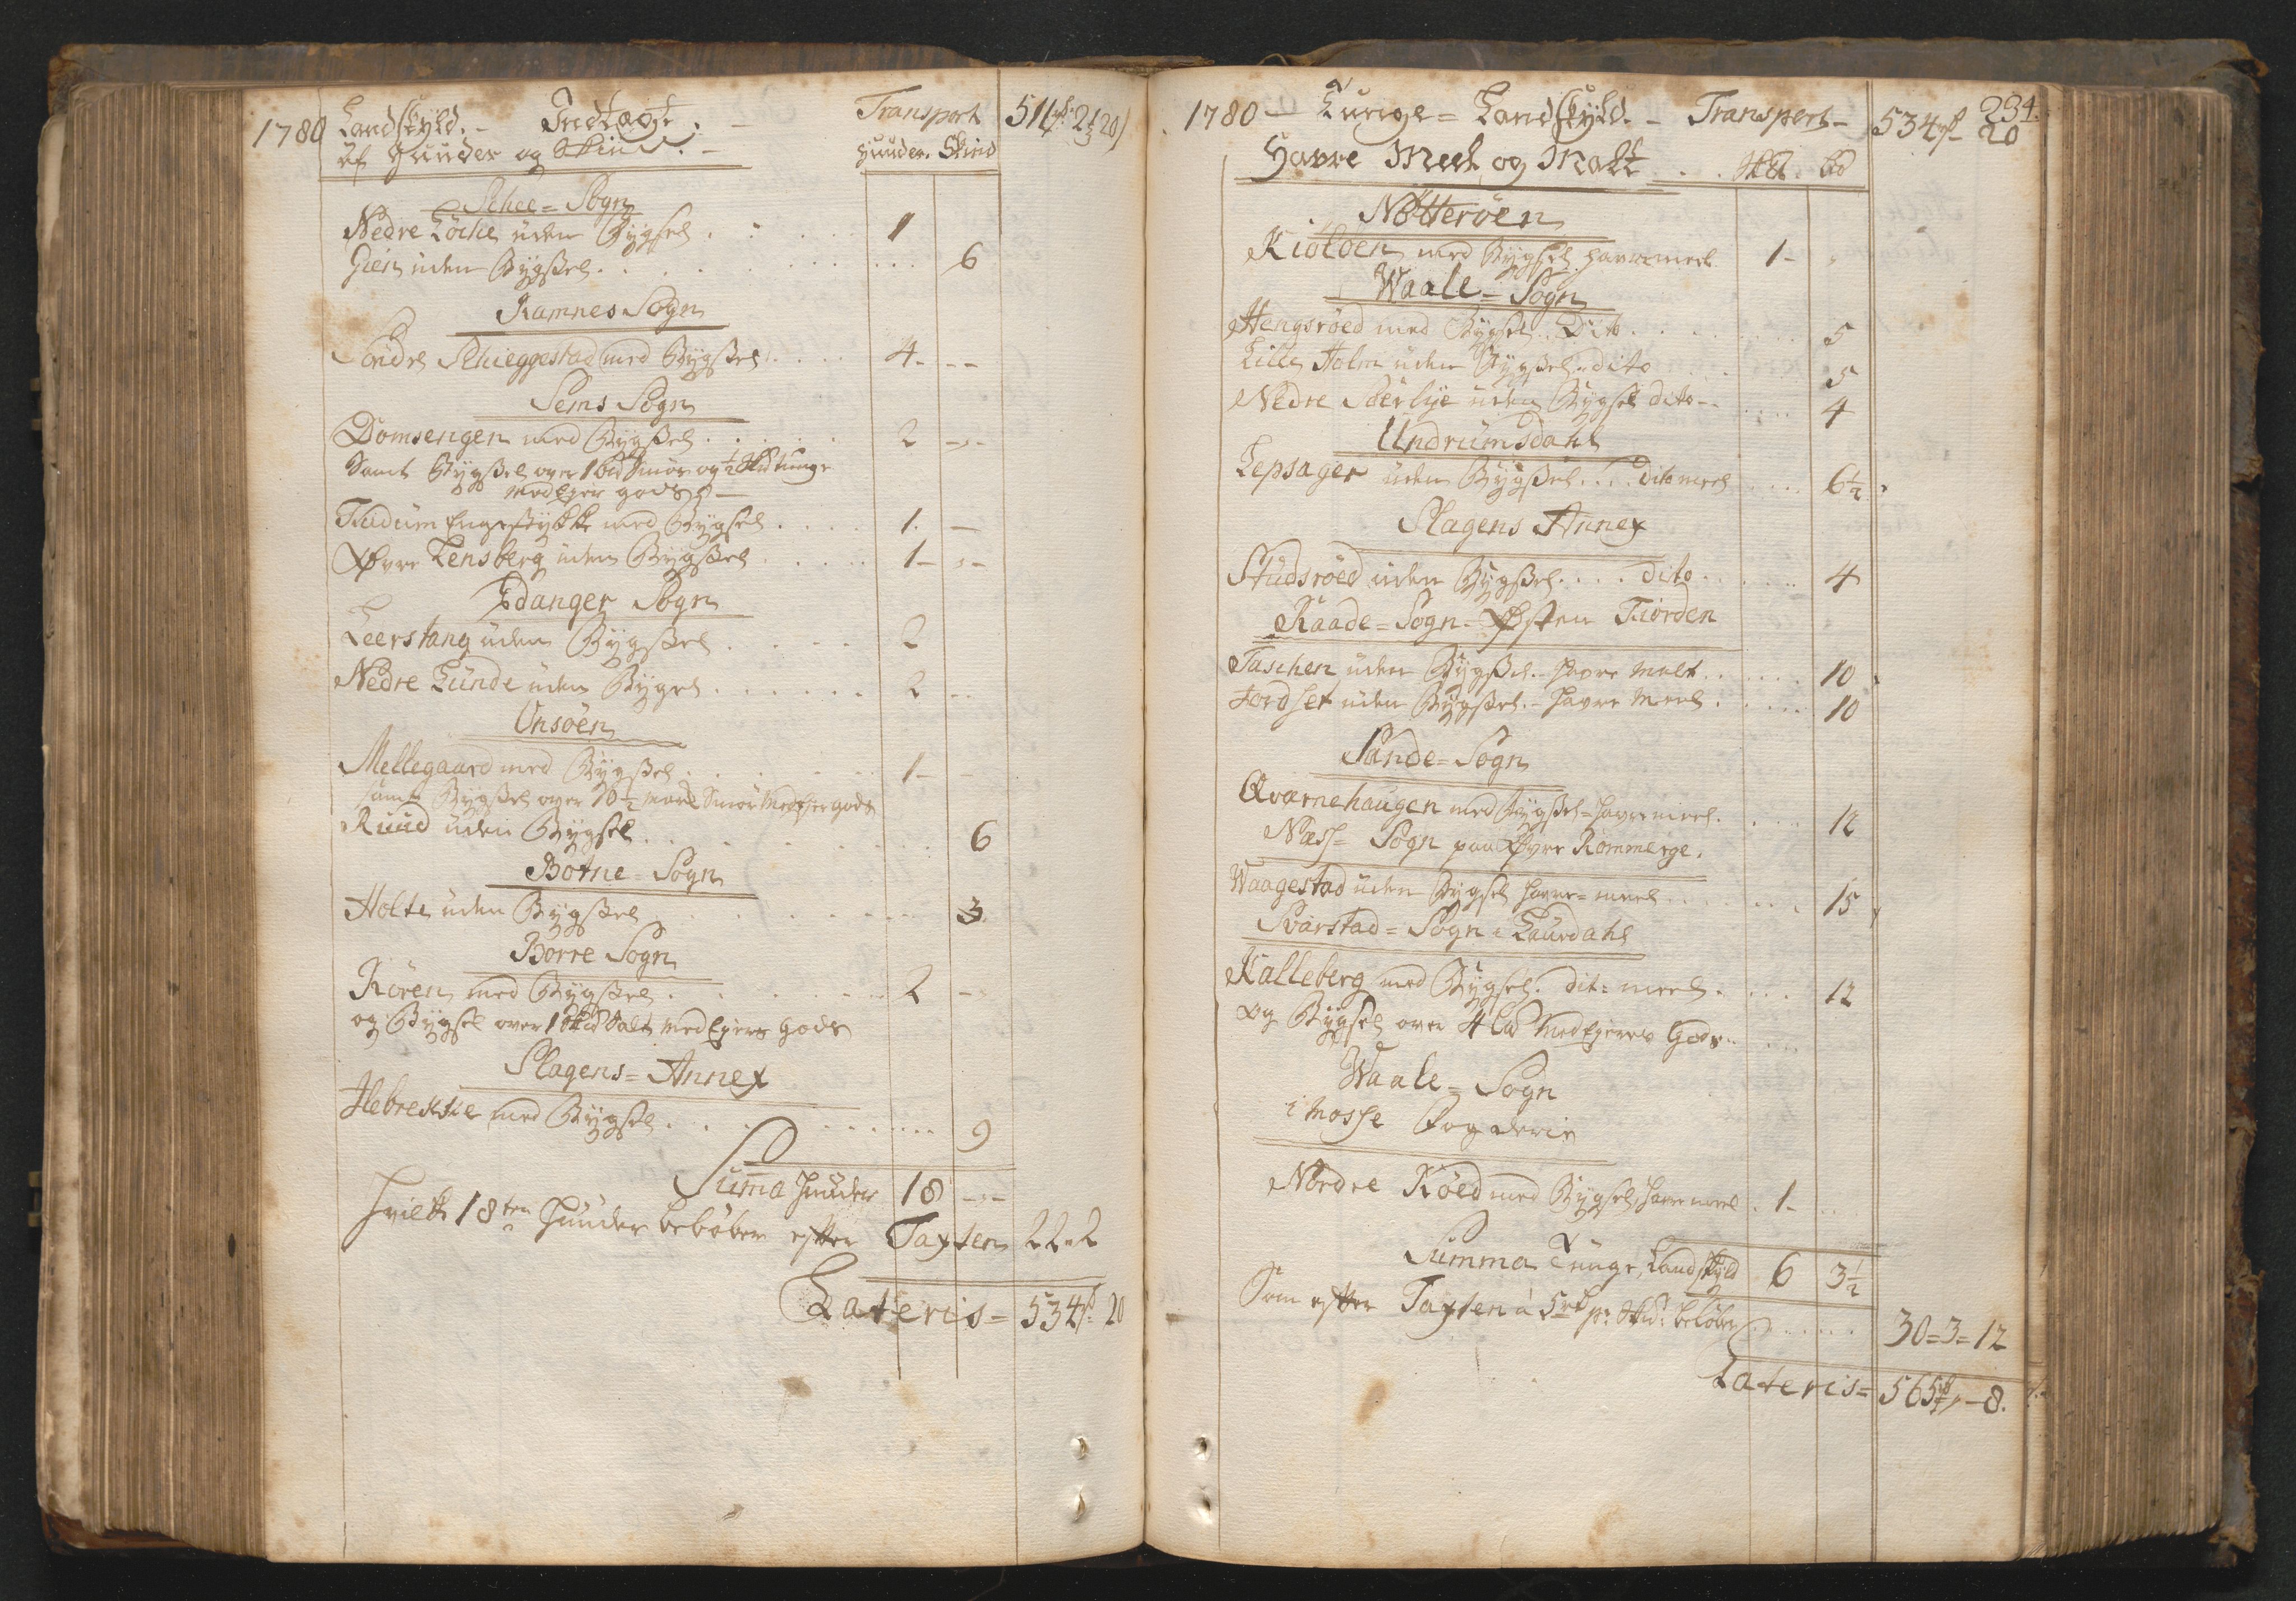 1780 Landskyld. - Indtægt. - Transport 511 rd 2 20
Af Huuder og Skind. - Huuder. Skind
Schee = Sogn
Nedre Löche uden Bygsel . . . . 1
Gien uden Bygßel . . . . 6
Ramnes Sogn
Söndre Schieggestad med Bygßel . . . . 4 - - -
Sems Sogn
Domsengen med Bygßel . . . . 2 - - -
Samt Bygßel over 1 bd Smör og ½ Skd tunge
MedEjer gods -
Tudum Engestykke med Bygsel . . . . 1. -
Øfvre Lensberg uden Bygßel . . . . 1 - - -
Edanger Sogn
Leerstang uden Bygßel . . . . 2
Nedre Lunde uden Bygsel . . . . 2 - -
Onsöen
Mellegaard med Bygßel . . . . 1 - -
samt Bygßel over 10½ Mark Smör MedEjer gods
Ruud uden Bygsel . . . . 6
Botne = Sogn
Holte uden Bygßel . . . . 3
Borre Sogn
Rören med Bygßel . . . . 2 - -
og Bygsel over 1 Skd Salt MedEjers Gods
Slagens = Annex
Ilebrekke med Bygsel . . . . 9
Summa Huuder 18 - - -
Hvilke 18ten Huuder beløber efter Taxten 22 = 2
Lateris = 534 rd = 20
234.
1780 - Tunge = Landskyld. - Transport - 534 rd - 20
Havre Meel og Malt . . Skd. bd
Nøtteröen
Kiölöen med Bygsel havremeel 1 -
Waale = Sogn
Hengsröed med Bygsel . . Dito . . . . 5
Lille Holm uden Bygßel = dito . . . . 5
Nedre Soerlye uden Bygsel dito - . . . . 4
Undrumsdahl
Lepsager uden Bygßel . . . . dito meel . . . . 6½
Slagens Annex
Studsröed uden Bygßel . . . . dito . . . . 4
Raade = Sogn - Østen Fiorden
Taschen uden Bygßel. - havre Malt . . . . 10
Jordset uden Bygßel. - havre Meel . . . . 10
Sande = Sogn
Qvarnehaugen med Bygßel = havremeel . . . . 12
Næss = Sogn paa Øvre Rommerge.
Waagestad uden Bygsel havre = meel . . . . 15
Svarstad = Sogn i Laurdahl
Kalleberg med Bygsel. dit: meel . . . . 12
og Bygsel over 4 bd MedEjeres Gods . . . .
Waale = Sogn
i Mosse Fogderie
Nordre Röed med Bygsel, havre meel . 1 - . .
Summa Tunge, Landskyld 6 3½
Som efter Taxten à 5 rd pr. Skd: beløber . . . . 30 = 3 = 12
Lateris = 565 rd - 8.